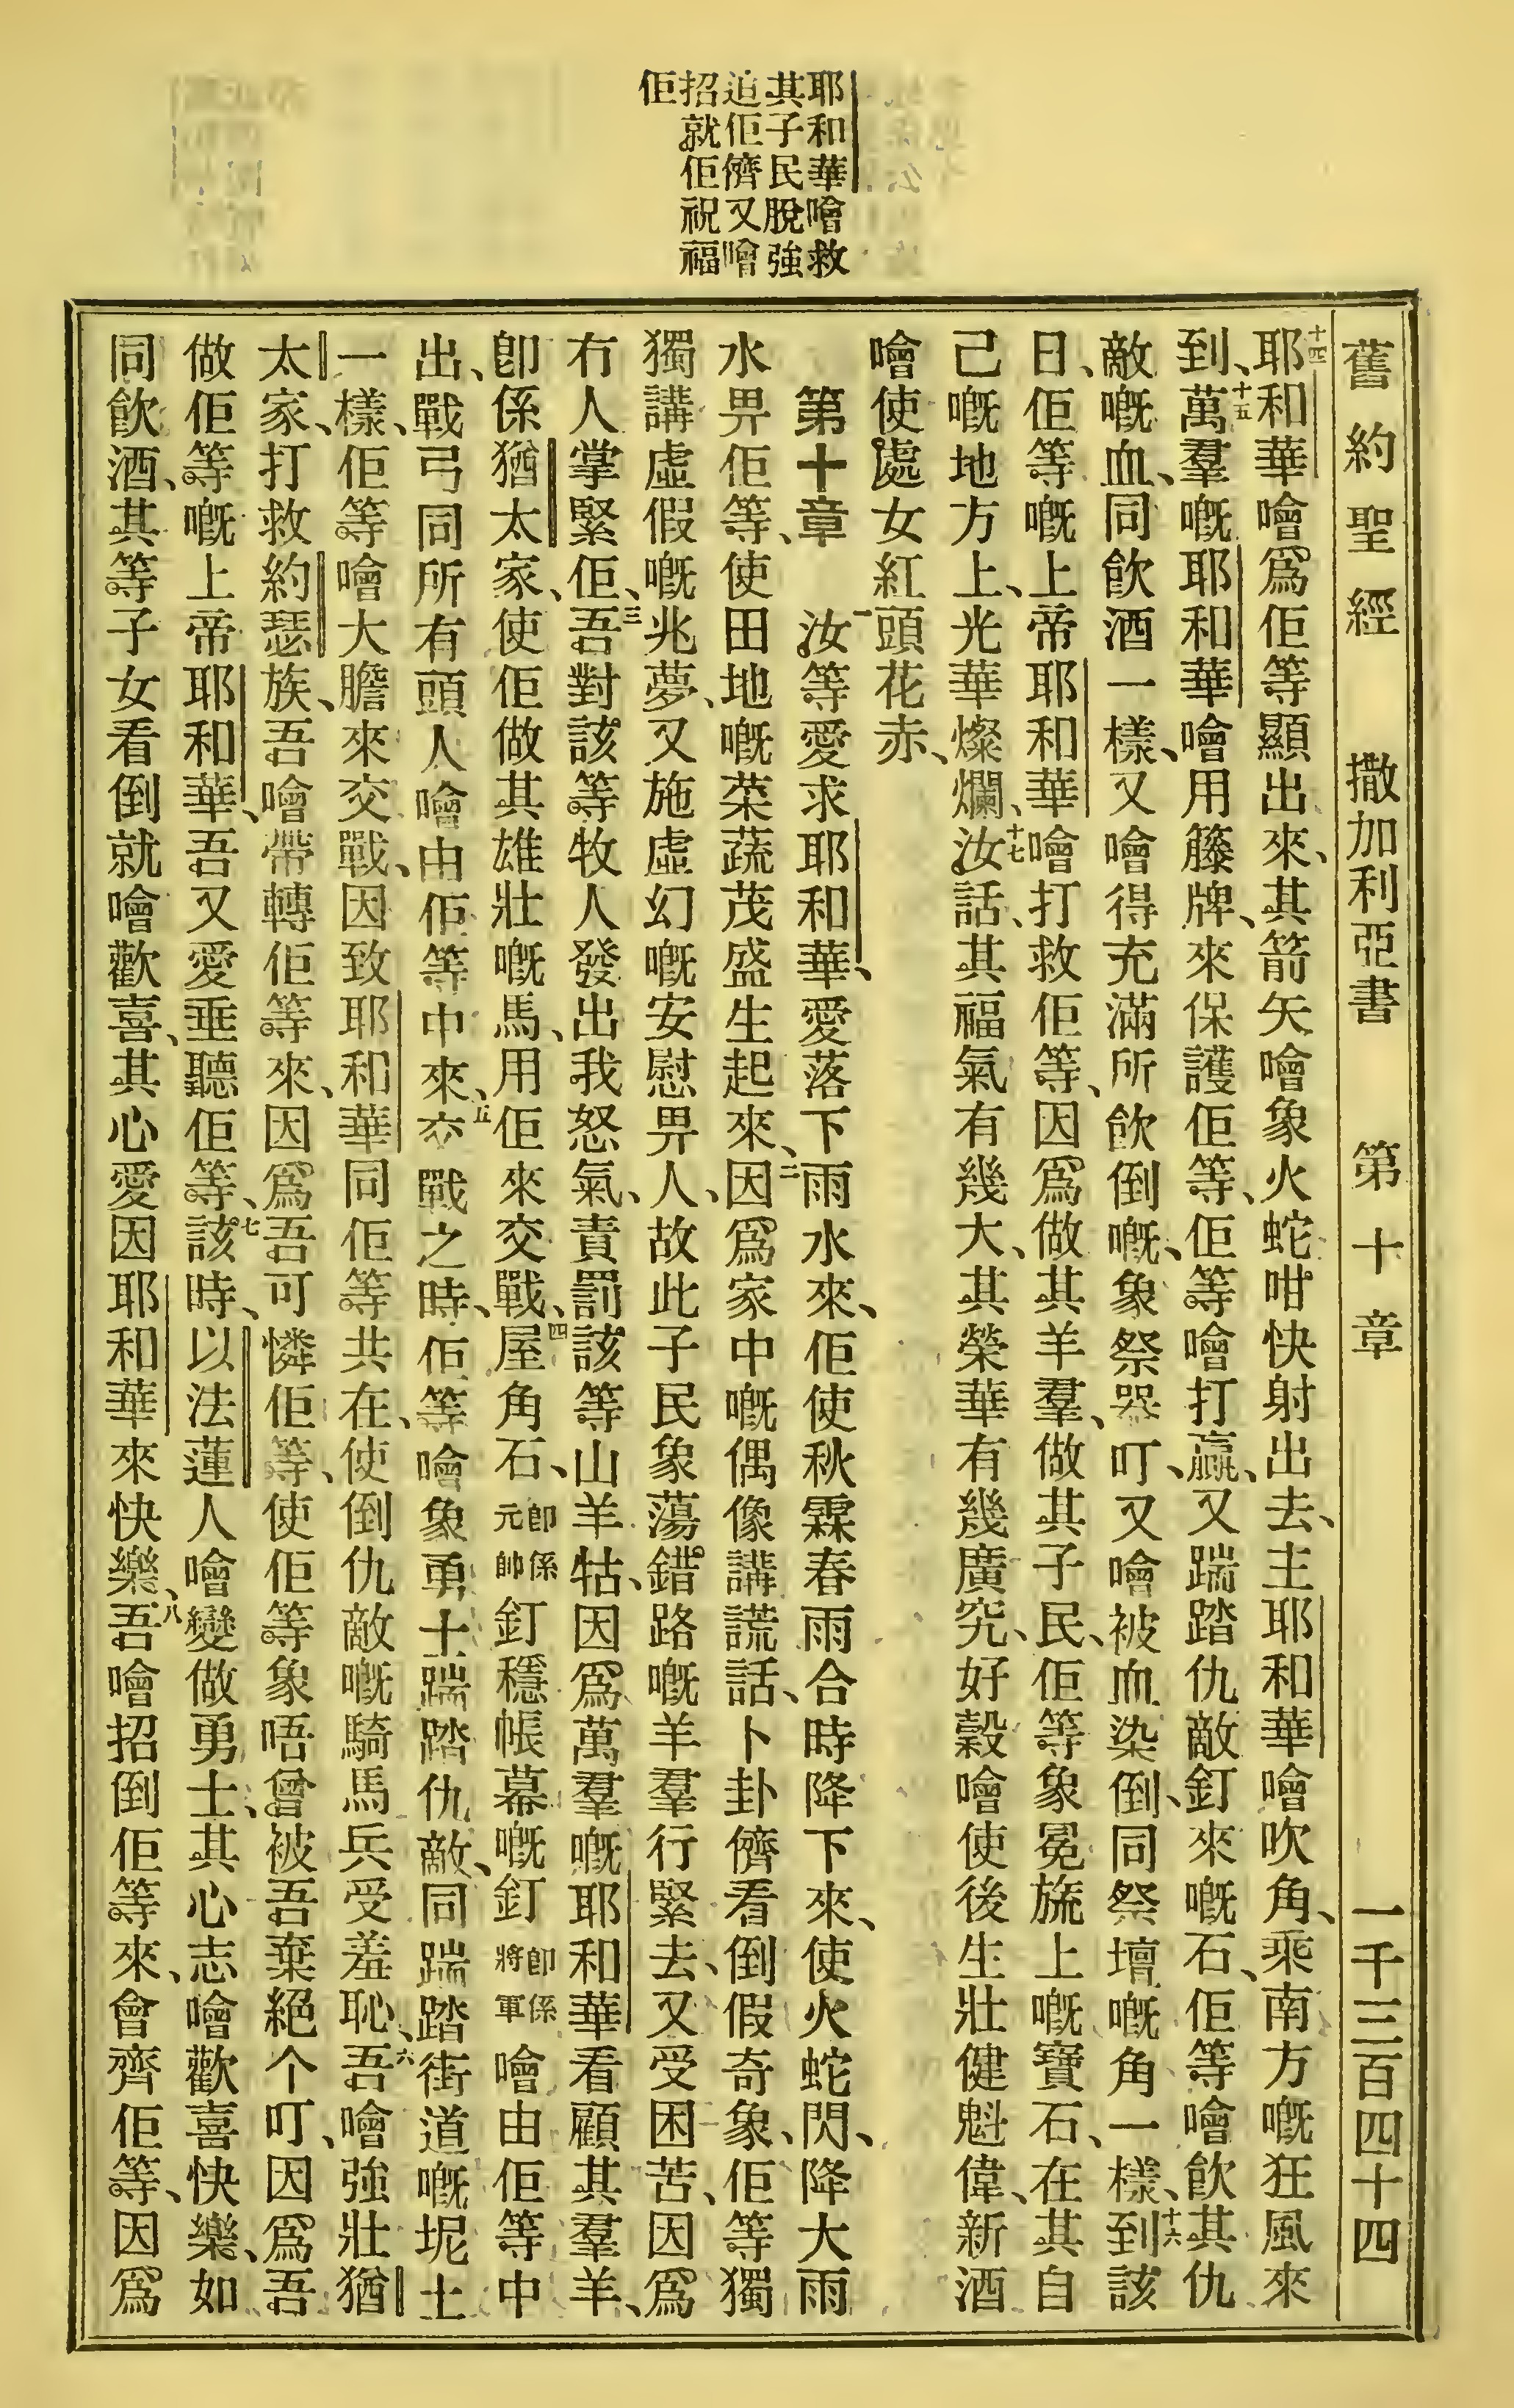 耶和華噲救
其子民脫強
迫佢儕又噲
招就佢祝福
佢
舊約聖經　撒加利亞書　第十章　一千三百四十四
十四耶和華噲爲佢等顯出來、其箭矢噲象火蛇咁快射出去、主耶和華噲吹角、乘南方嘅狂風來
到、十五萬羣嘅耶和華噲用籐牌、來保護佢等、佢等噲打贏、又踹踏仇敵釘來嘅石、佢等噲飮其仇
敵嘅血、同飮酒一樣、又噲得充滿所飮倒嘅、象祭器叮、又噲被血染倒、同祭壇嘅角一樣、十六到該
日、佢等嘅上帝耶和華噲打救佢等、因爲做其羊羣、做其子民、佢等象冕旒上嘅寶石、在其自
己嘅地方上、光華燦爛、十七汝話、其福氣有幾大、其榮華有幾廣究、好穀噲使後生壯健魁偉、新酒
噲使處女紅頭花赤、
第十章　一汝等愛求耶和華、愛落下雨水來、佢使秋霖春雨合時降下來、使火蛇閃、降大雨
水畀佢等、使田地嘅菜蔬茂盛生起來、二因爲家中嘅偶像講謊話、卜卦儕看倒假奇象、佢等獨
獨講虛假嘅兆夢、又施虛幻嘅安慰畀人、故此子民象蕩錯路嘅羊羣行緊去、又受困苦、因爲
冇人掌緊佢、三吾對該等牧人發出我怒氣、責罰該等山羊牯、因爲萬羣嘅耶和華看顧其羣羊、
卽係猶太家、使佢做其雄壯嘅馬、用佢來交戰、四屋角石、卽係元帥釘穩帳幕嘅釘卽係將軍噲由佢等中
出、戰弓同所有頭人噲由佢等中來、五交戰之時、佢等噲象勇士踹踏仇敵、同踹踏街道嘅坭土
一樣、佢等噲大膽來交戰、因致耶和華同佢等共在、使倒仇敵嘅騎馬兵受羞恥、六吾噲強壯猶
太家、打救約瑟族、吾噲帶轉佢等來、因爲吾可憐佢等、使佢等象唔曾被吾棄絕个叮、因爲吾
做佢等嘅上帝耶和華、吾又愛垂聽佢等、七該時、以法蓮人噲變做勇士、其心志噲歡喜快樂、如
同飮酒、其等子女看倒就噲歡喜、其心愛因耶和華來快樂、八吾噲招倒佢等來、會齊佢等、因爲